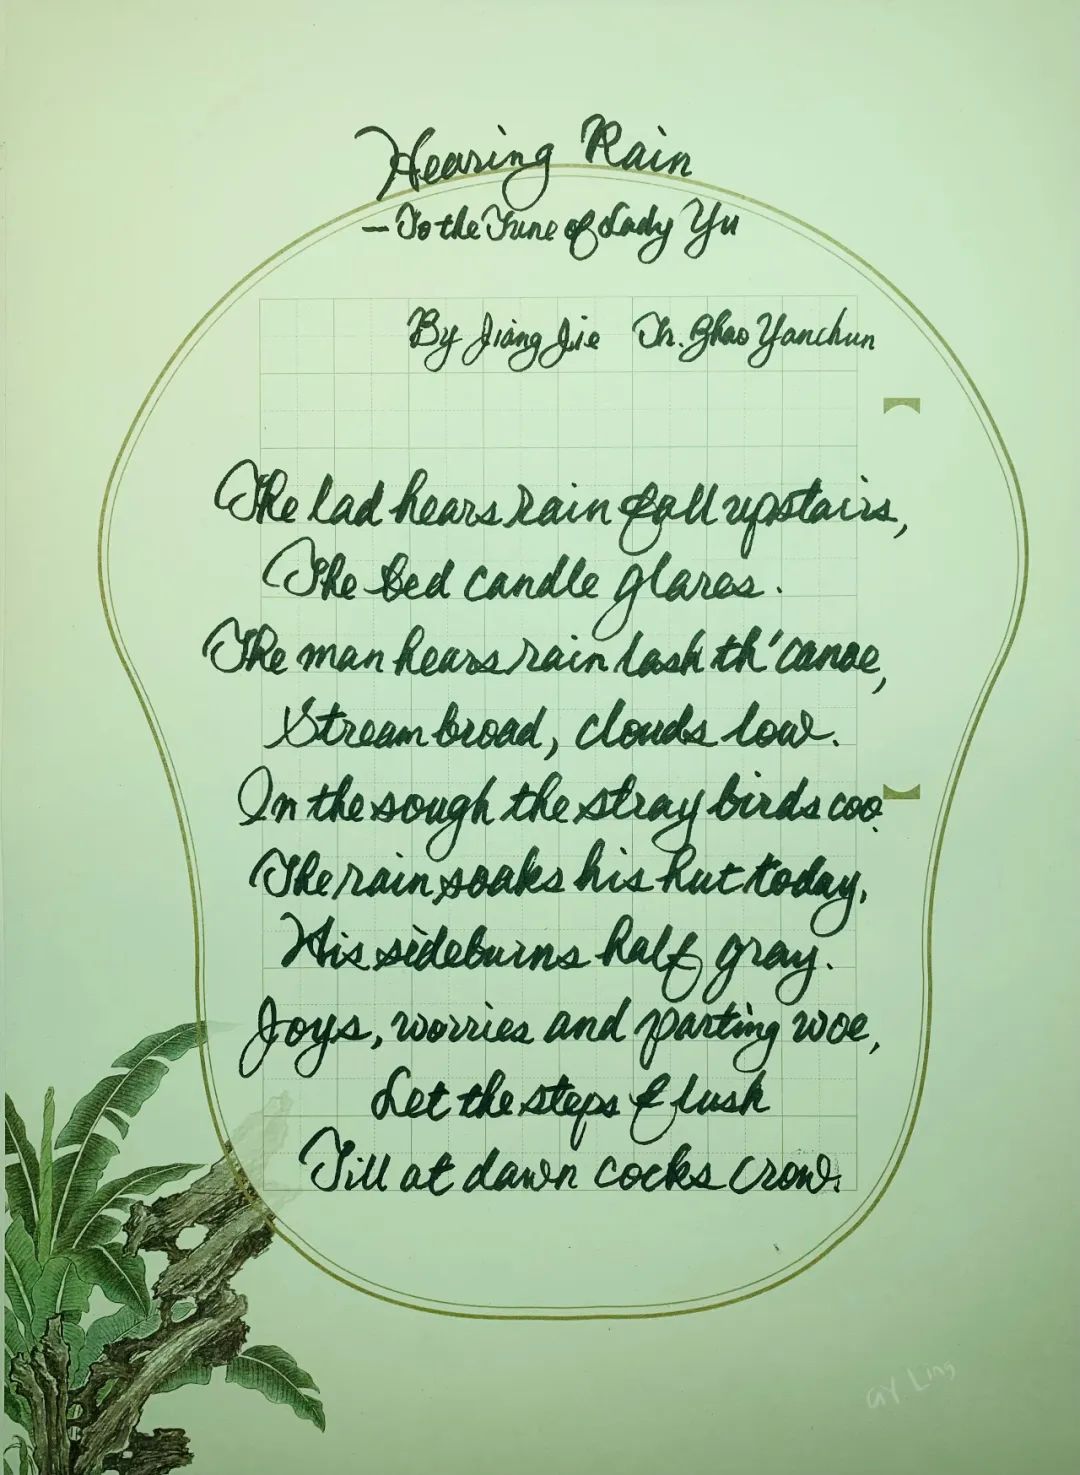 Hearing Rain
—To the Tune of Lady Yu
By Jiang Jie Tr. Zhao Yanchun
The lad hears rain fall upstairs,
The bed candle glares.
The man hears rain lash th' canoe,
Stream broad, clouds low.
In the sough the stray birds coo.
The rain soaks his hut today,
His sideburns half gray.
Joys, worries and parting woe,
Let the steps flush
Till at dawn cocks crow.
GY. Ling